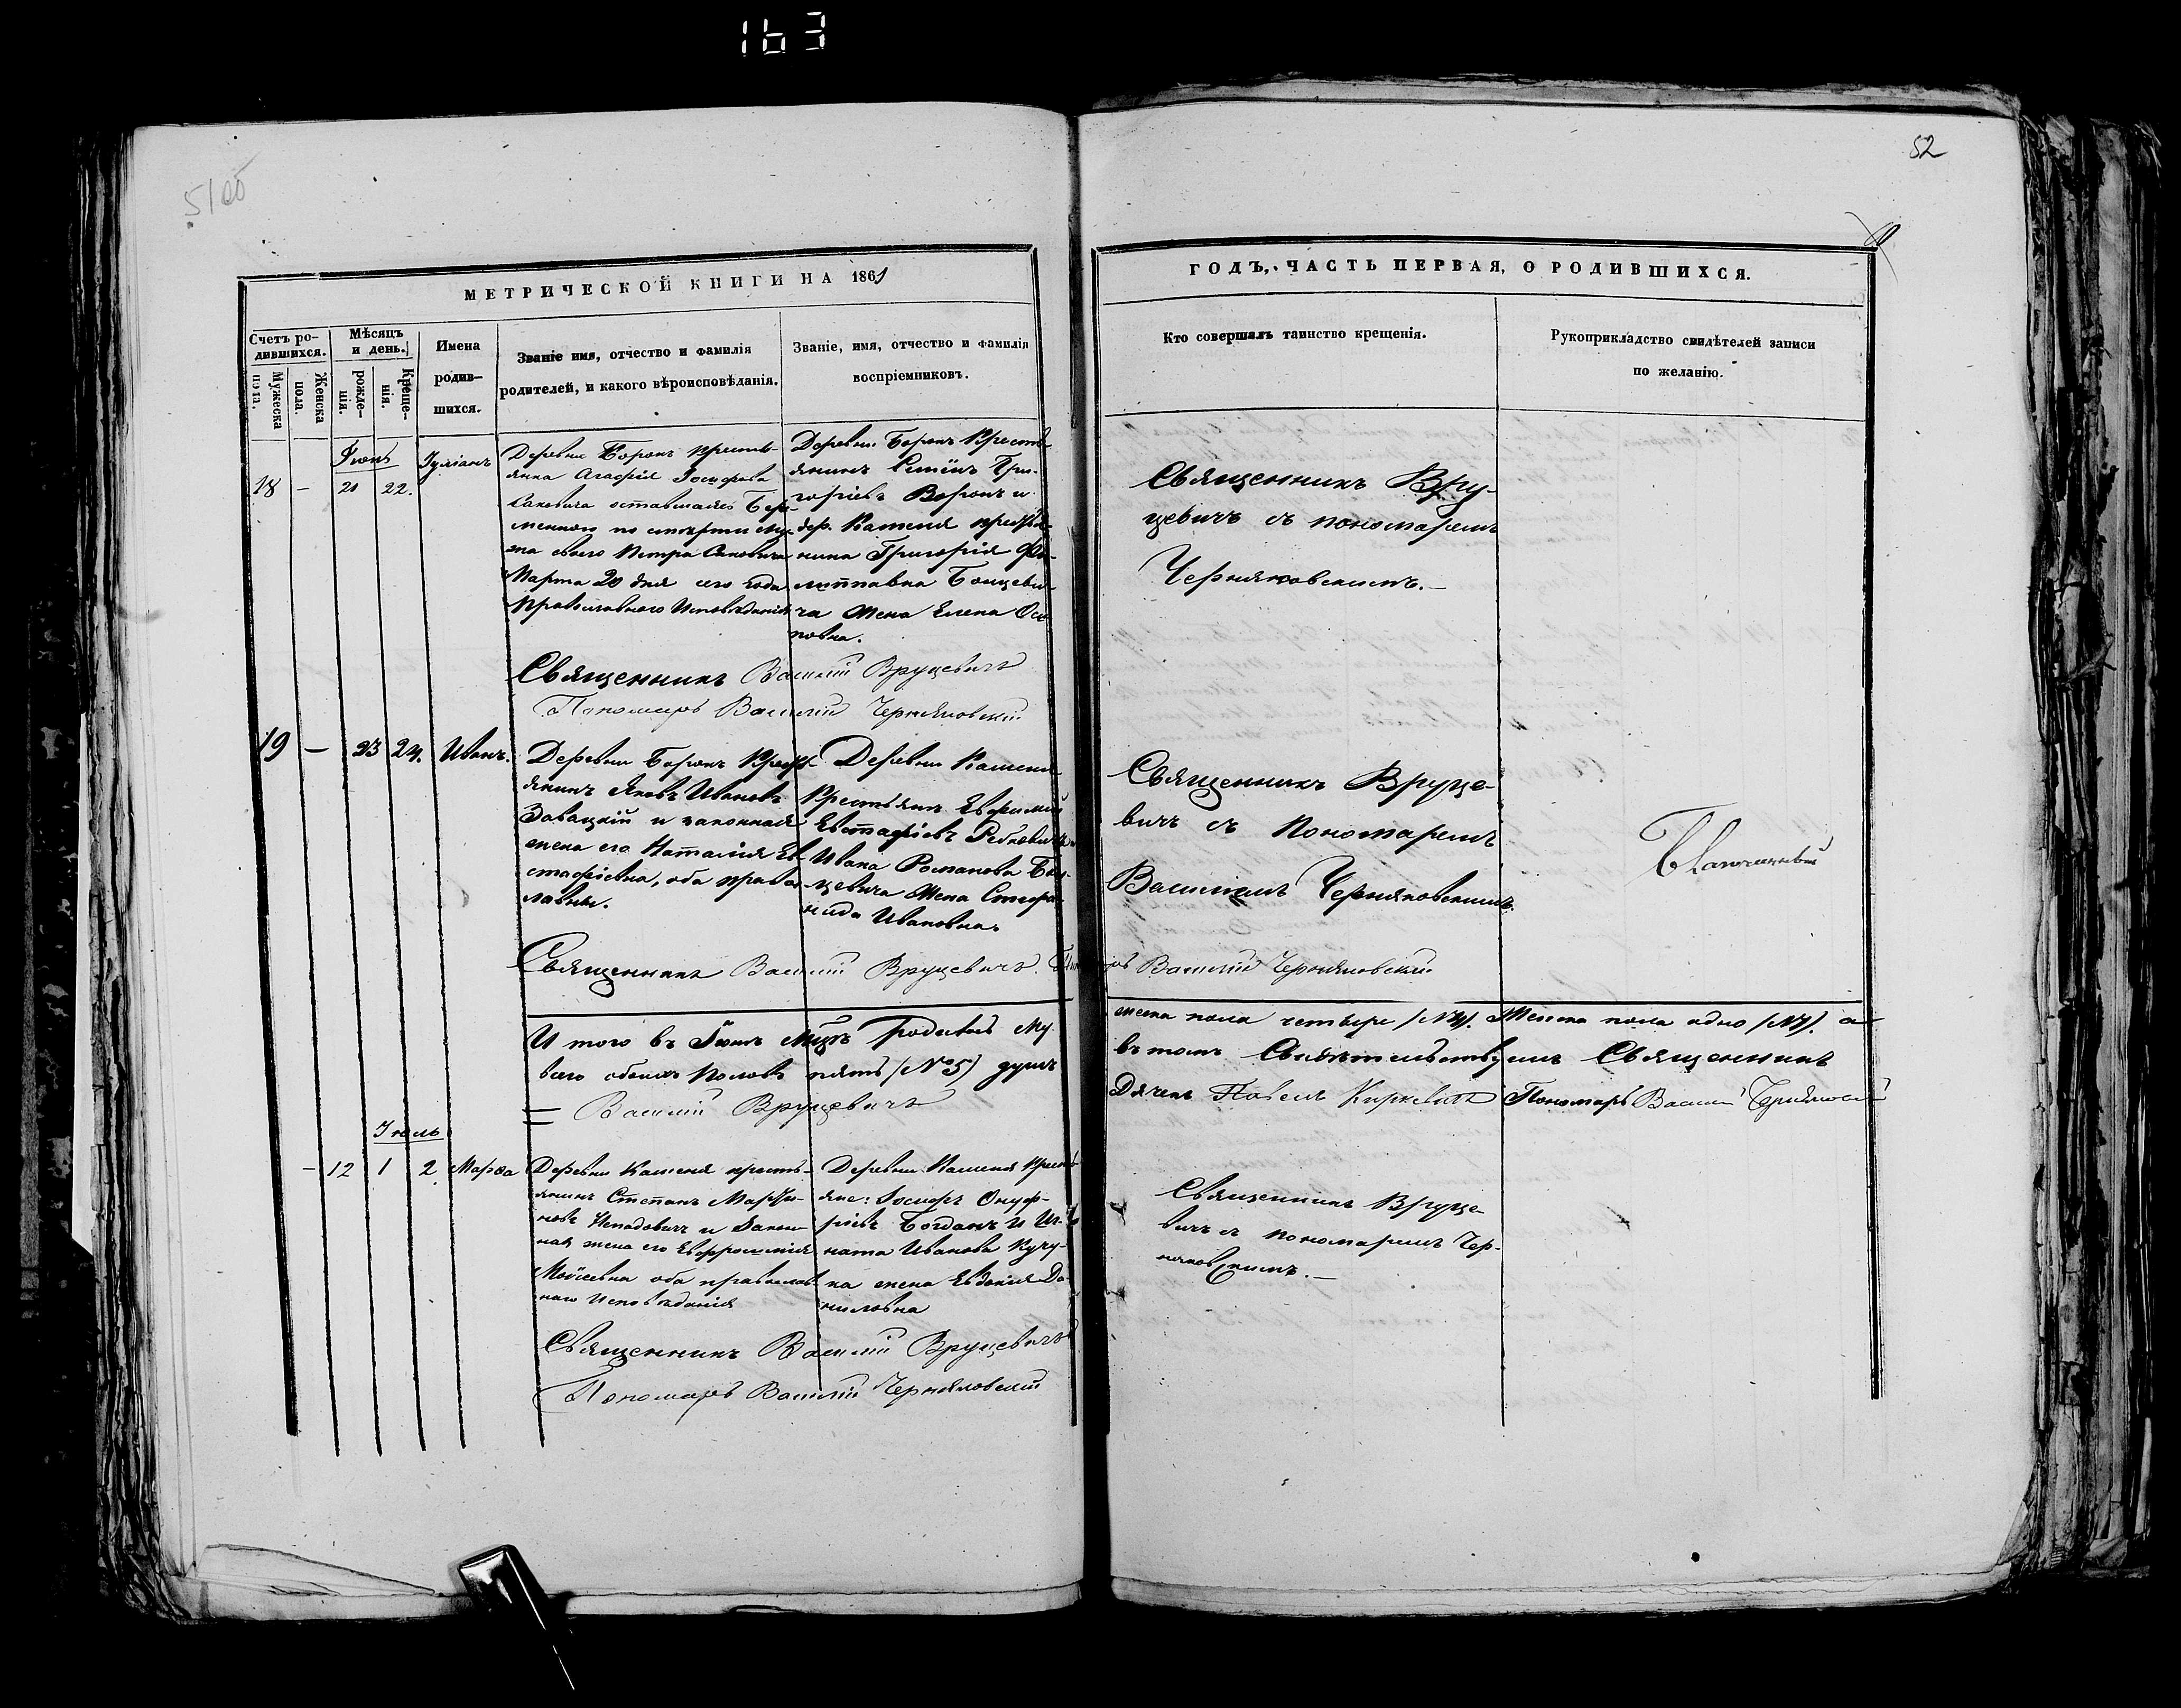 163
52
МЕТРИЧЕСКОЙ КНИГИ НА 1861
ГОДЪ, ЧАСТЬ ПЕРВАЯ, О РОДИВШИХСЯ.
Счетъ ро-
дившихся.
Мужеска
пола.
Женска
пола.
Мѣсяцъ
и день.
рожде-
нія.
Креще-
нія.
Имена
родив-
шихся.
Званіе имя, отчество и фамилія
родителей, и какого вѣроисповѣданія.
Званіе, имя, отчество и фамилія
воспріемниковъ.
Кто совершалъ таинство крещенія.
Рукоприкладство свидѣтелей записи
по желанію.
Іюнь
18 — 21 22.
Іуліанъ
Деревни Воронъ кресть-
янка Агафія Іосифова
Саковича оставшаяся Бере-
менною по смерти му-
жа своего Петра Саковича
Марта 20 дня сего года
Православнаго Исповѣданія
Деревни Воронъ Кресть-
янинъ Семёнъ Гри-
горіевъ Воронъ и
дер. Каменя крестья-
нина Григорія Фи-
ча жена Елена Оси-
повна.
Священникъ Вру-
цевичъ съ пономаремъ
Черняковскимъ.—
Священникъ Василій Вруцевичъ
Пономарь Василій Черняковскій
19 — 23 24. Иванъ.
Деревни Воронъ Крест-
янинъ Яковъ Ивановъ
Завацкій и законная
жена его Наталія Ев-
стафіевна, оба право-
лавны.
Деревни Каменя
Крестьянъ Евфимій
Евстафіевъ Ребковичъ
Ивана Романова Бон-
цевича Жена Стефа-
нида Ивановна.
Священникъ Вруце-
вичъ съ Пономаремъ
Василіемъ Черняковскимъ.
Священникъ Василій Вруцевичъ. Пономарь Василій Черняковскій
И того въ Іюнѣ М-цѣ Родилось Му-
жеска пола четыре (№4). Женска пола одно (№1). а
всего обоихъ половъ пять (№5) душъ
въ томъ Свидѣтельствуемъ Священникъ
= Василій Вруцевичъ
Дячекъ Павелъ Киркевичъ Пономарь Василій Черняковскій
Іюль
— 12 1 2. Марѳа
Деревни Каменя кресть-
янинъ Степанъ Марти-
новъ Ненадовичъ и Закон-
ная жена его Евфросинія
Мойсевна оба православ-
наго Исповѣданія
Деревни Каменя Кресть-
яне: Іосифъ Онуф-
ріевъ Богданъ и Иг-
ната Иванова Кучу-
ка жена Евдокія Да-
ниловна
Священникъ Вруце-
вичъ съ пономаремъ Чер-
няковскимъ.—
Священникъ Василій Вруцевичъ
Пономарь Василій Черняковскій